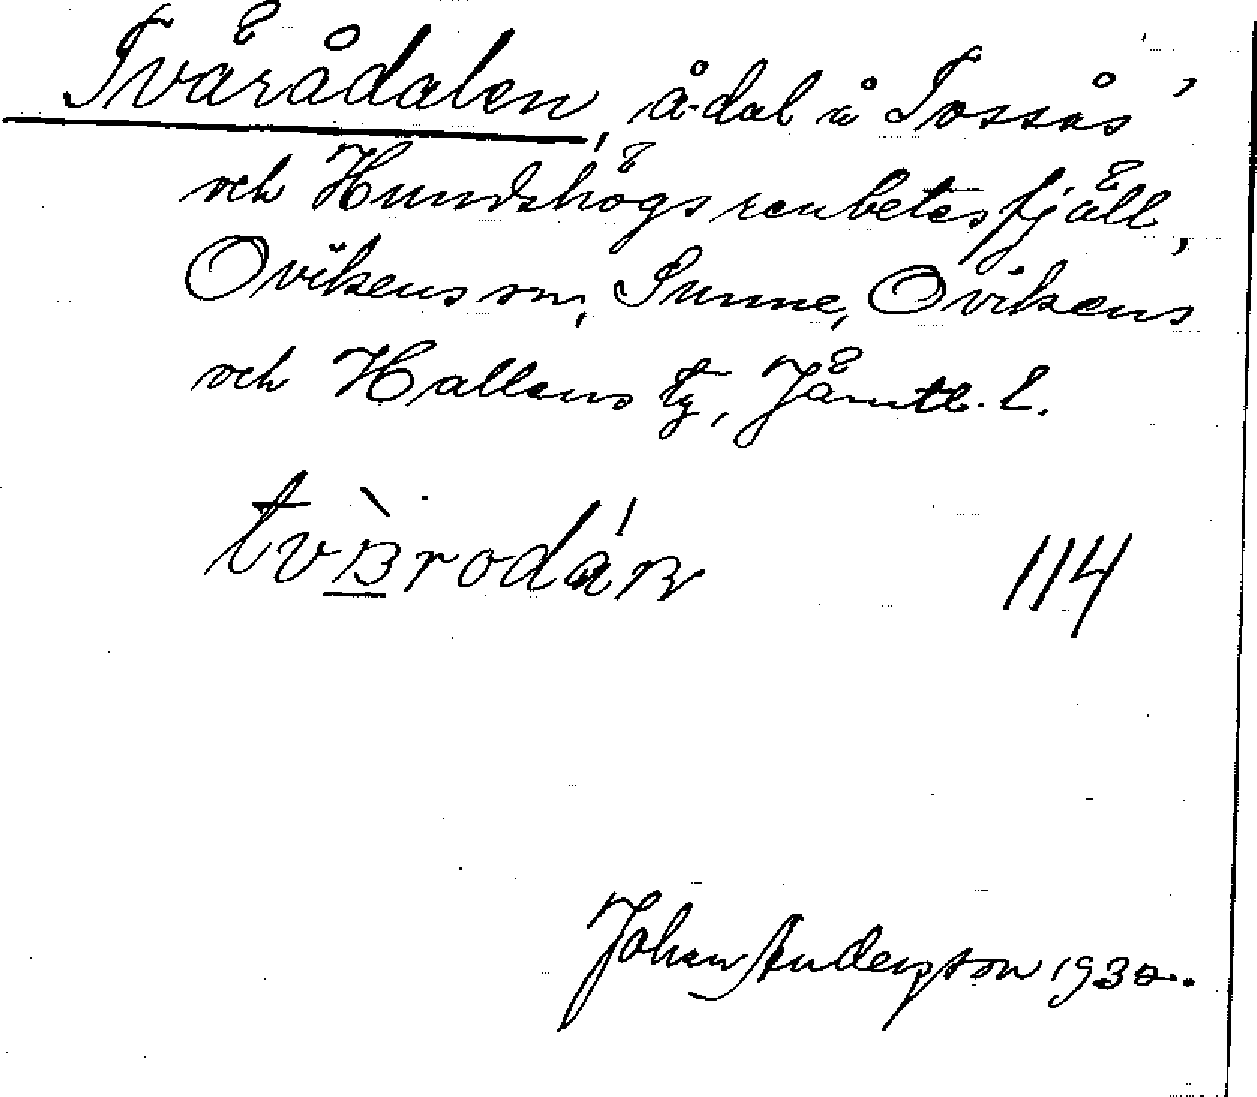 Tvärådalen, ådal å Tossås'
och Hundshögs renbetesfjäll,
Ovikens sn, Sunne, Ovikens
och Hallens tg, Jämtl. l.
114
Johan Anderson 1930.